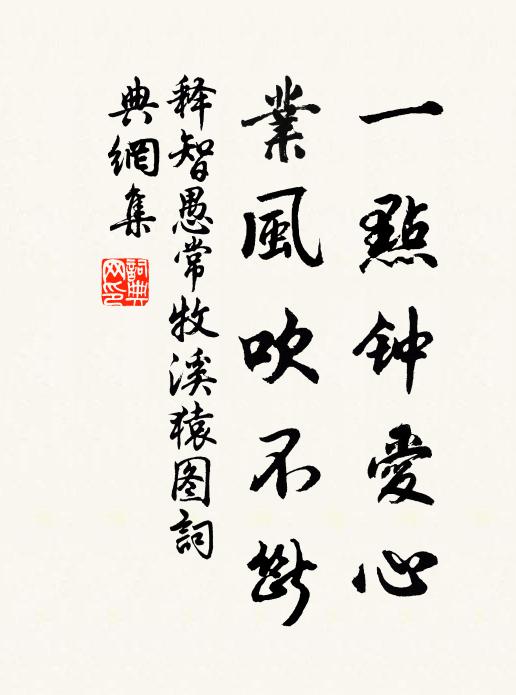 一點钟愛心
業風吹不斷
释智愚常牧溪猿图詞
典網集
詞典
网印